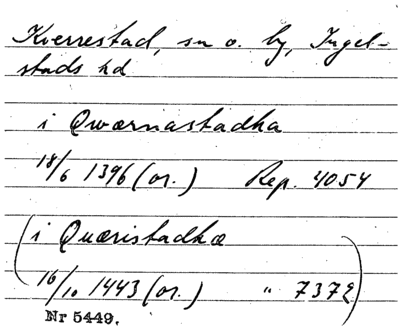 Kverrestad, sn o. by, Ingel-
stads hd
i Qwærnastadha
18/6 1396 (or.) Rep. 4054
(i Quæristadhæ
16/10 1443 (or.) " 7372)
Nr 5449.